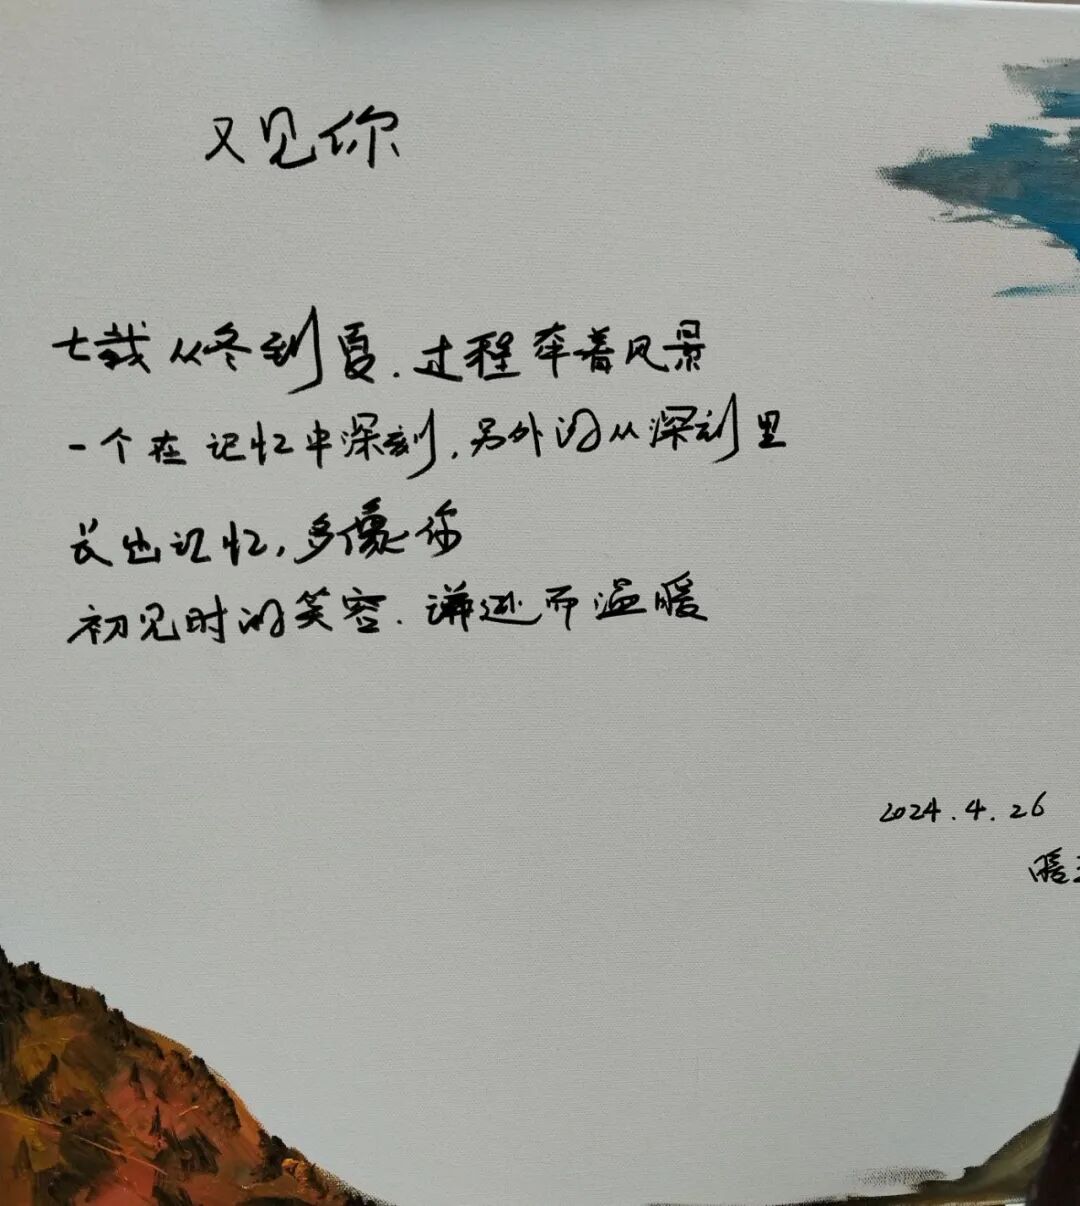 又见你
七载从冬到夏.过程牵着风景
一个在记忆中深刻,另外的从深刻里
长出记忆,多像你
初见时的笑容.谦逊而温暖
2024.4.26
暖